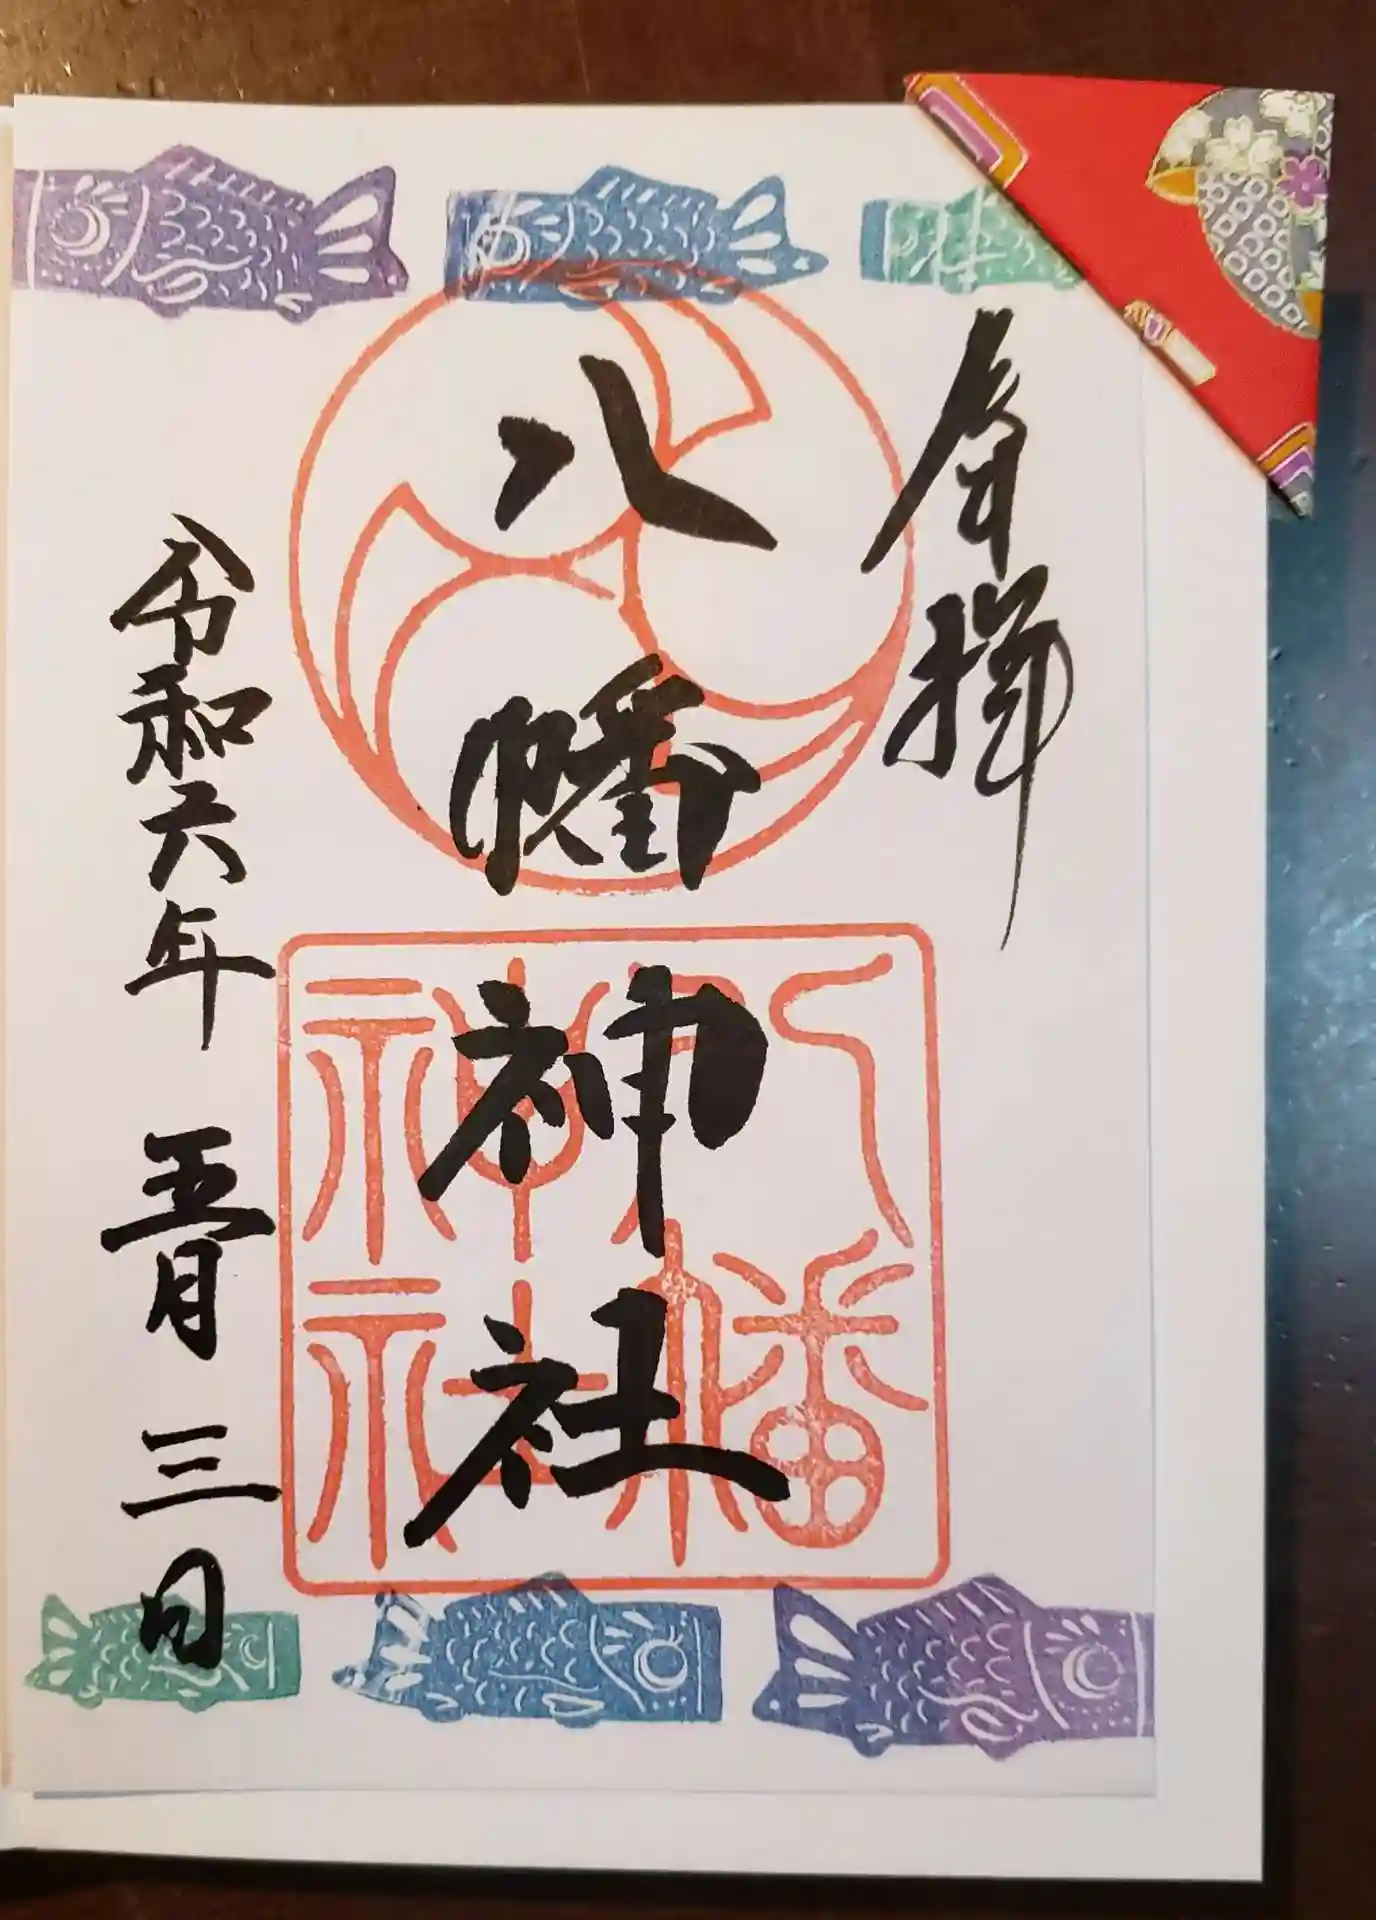 奉拝
八幡神社
八幡神社
令和六年 五月 三日